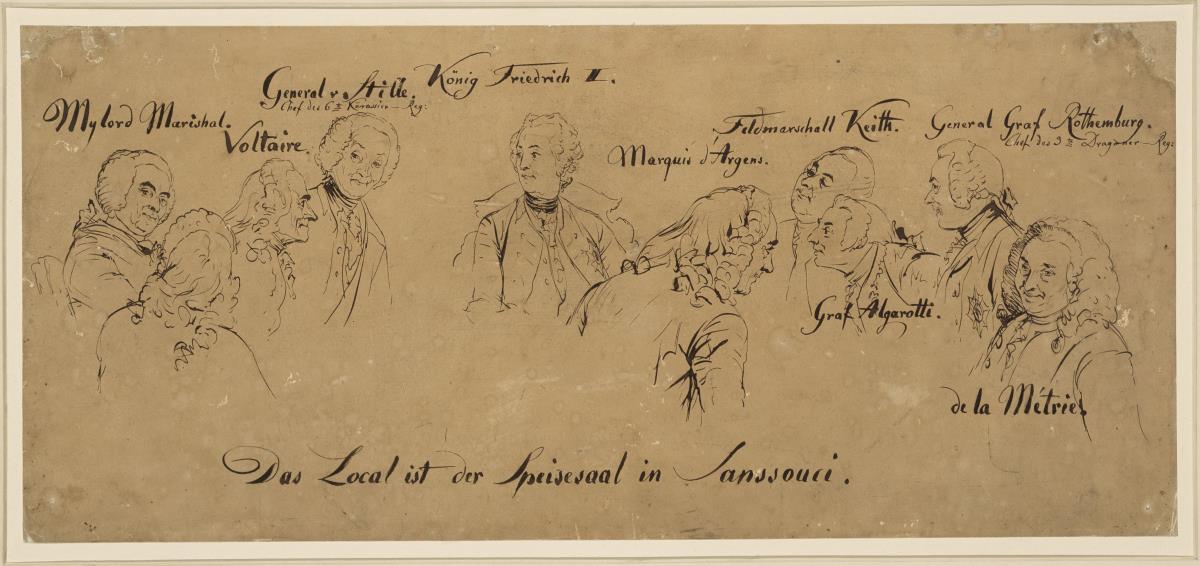 Mylord Marishal.
General v. Stille.
Chef des 6ten Kürassier-Reg:
Voltaire.
König Friedrich II.
Marquis d'Argens.
Feldmarschall Keith.
Graf Algarotti.
General Graf Rothemburg.
Chef des 3ten Dragoner-Reg:
de la Métrie.
Das Local ist der Speisesaal in Sanssouci.